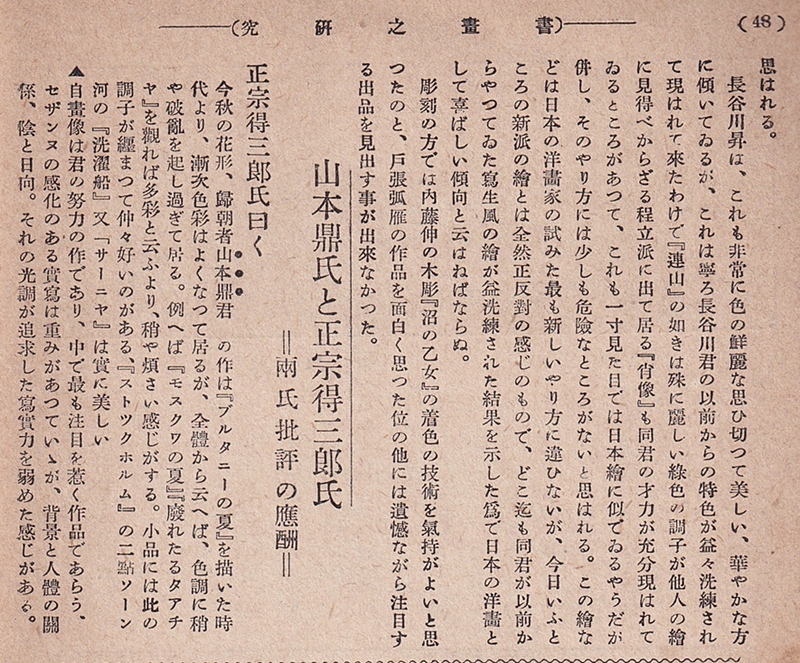 (48)
書畫之硏究
思はれる。
長谷川昇は、これも非常に色の鮮麗な思ひ切つて美しい、華やかな方
に傾いてゐるが、これは寧ろ長谷川君の以前からの特色が益々洗練され
て現はれて來たわけで『連山』の如きは殊に麗しい綠色の調子が他人の繪
に見得べからざる程立派に出て居る『肖像』も同君の才力が充分現はれて
ゐるところがあつて、これも一寸見た目では日本繪に似てゐるやうだが
併し、そのやり方には少しも危險なところがないと思はれる。この繪な
どは日本の洋畫家の試みた最も新しいやり方に違ひないが、今日いふと
ころの新派の繪とは全然正反對の感じのもので、どこ迄も同君が以前か
らやつてゐた寫生風の繪が益洗練された結果を示した爲で日本の洋畫と
して喜ばしい傾向と云はねばならぬ。
彫刻の方では内藤伸の木彫『沼の乙女』の着色の技術を氣持がよいと思
つたのと、戸張弧雁の作品を面白く思つた位の他には遺憾ながら注目す
る出品を見出す事が出來なかつた。
山本鼎氏と正宗得三郎氏
＝兩氏批評の應酬＝
正宗得三郎氏曰く
今秋の花形、歸朝者山本鼎君 の作は『ブルタニーの夏』を描いた時
代より、漸次色彩はよくなつて居るが、全體から云へば、色調に稍
や破亂を起し過ぎて居る。例へば『モスクワの夏』『廢れたるタアチ
ヤ』を觀れば多彩と云ふより、稍や煩さい感じがする。小品には此の
調子が纏まつて仲々好いのがある、『ストツクホルム』の二點ソーン
河の『洗濯船』又「サーニヤ』は實に美しい
▲自畫像は君の努力の作であり、中で最も注目を惹く作品であらう、
セザンヌの感化のある實寫は重みがあつていゝが、背景と人體の關
係、陰と日向。それの光調が追求した寫實力を弱めた感じがある。